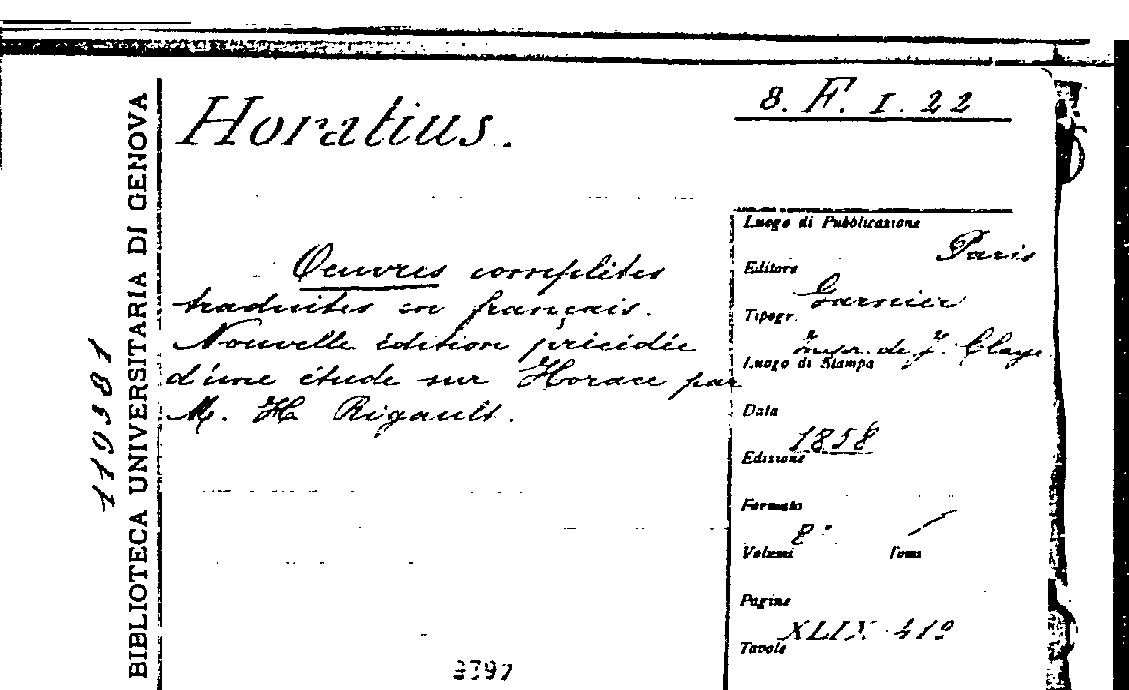 8. F. 1. 22
Horatius.
BIBLIOTECA UNIVERSITARIA DI GENOVA
119381
Oeuvres complètes
traduites en français.
Nouvelle édition précédée
d'une étude sur Horace par
M. H Rigault.
Luogo di Pubblicazione
Paris
Editore
Garnier
Tipogr.
Impr. de J. Claye
Luogo di Stampa
Data
1858
Edizione
Formato
8°
Volumi Tomi
Pagine
XLIX-419
Tavole